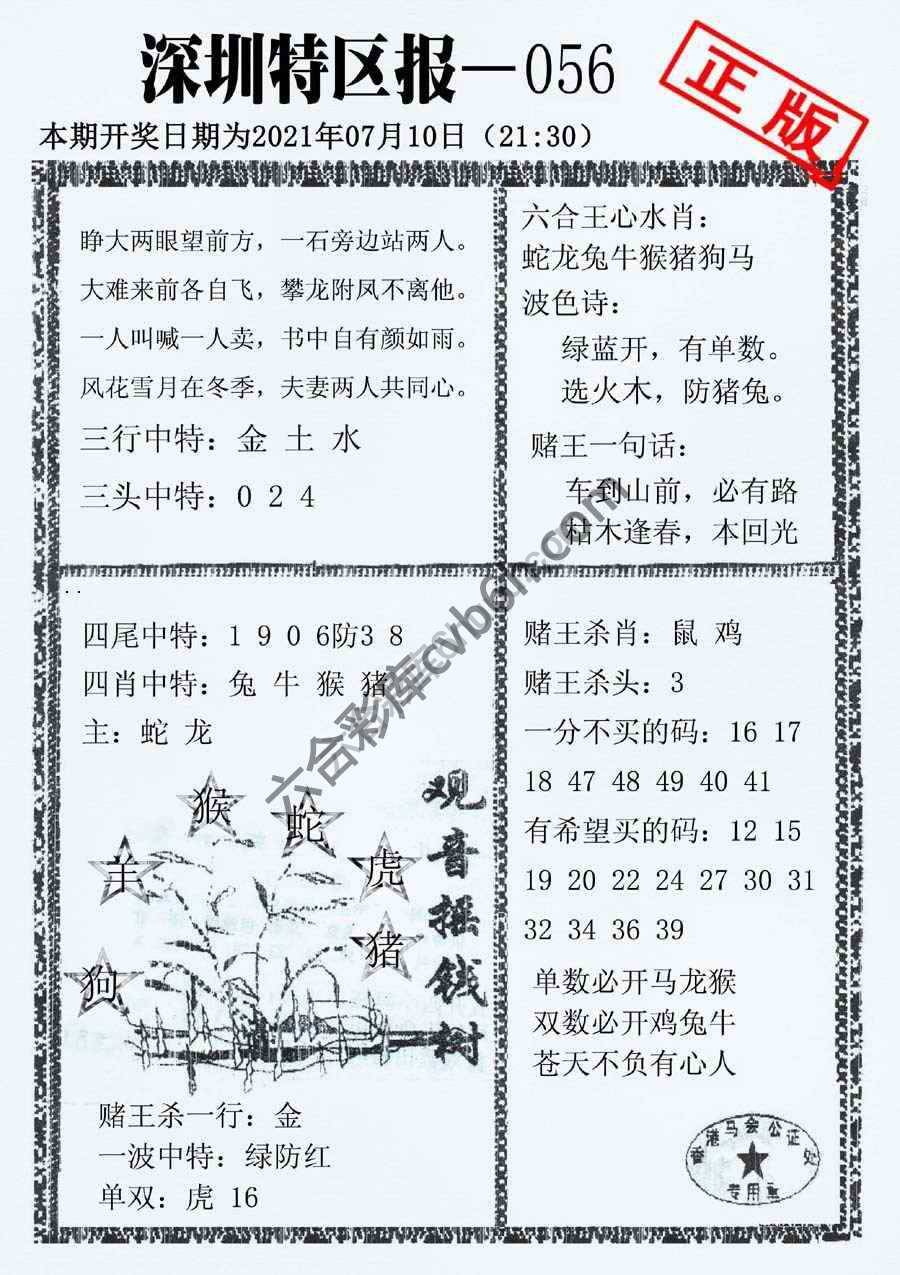 深圳特区报—056
正版
本期开奖日期为2021年07月10日（21:30）
睁大两眼望前方，一石旁边站两人。
大难来前各自飞，攀龙附凤不离他。
一人叫喊一人卖，书中自有颜如雨。
风花雪月在冬季，夫妻两人共同心。
三行中特：金 土 水
三头中特：0 2 4
六合王心水肖：
蛇龙兔牛猴猪狗马
波色诗：
绿蓝开，有单数。
选火木，防猪兔。
赌王一句话：
车到山前，必有路
枯木逢春，本回光
四尾中特：1 9 0 6防3 8
四肖中特：兔 牛 猴 猪
主：蛇 龙
猴
蛇
羊
虎
猪
狗
观音摇钱树
赌王杀一行：金
一波中特：绿防红
单双：虎 16
赌王杀肖：鼠 鸡
赌王杀头：3
一分不买的码：16 17
18 47 48 49 40 41
有希望买的码：12 15
19 20 22 24 27 30 31
32 34 36 39
单数必开马龙猴
双数必开鸡兔牛
苍天不负有心人
香港马会公证处
专用章
六合彩库cvb6h.com